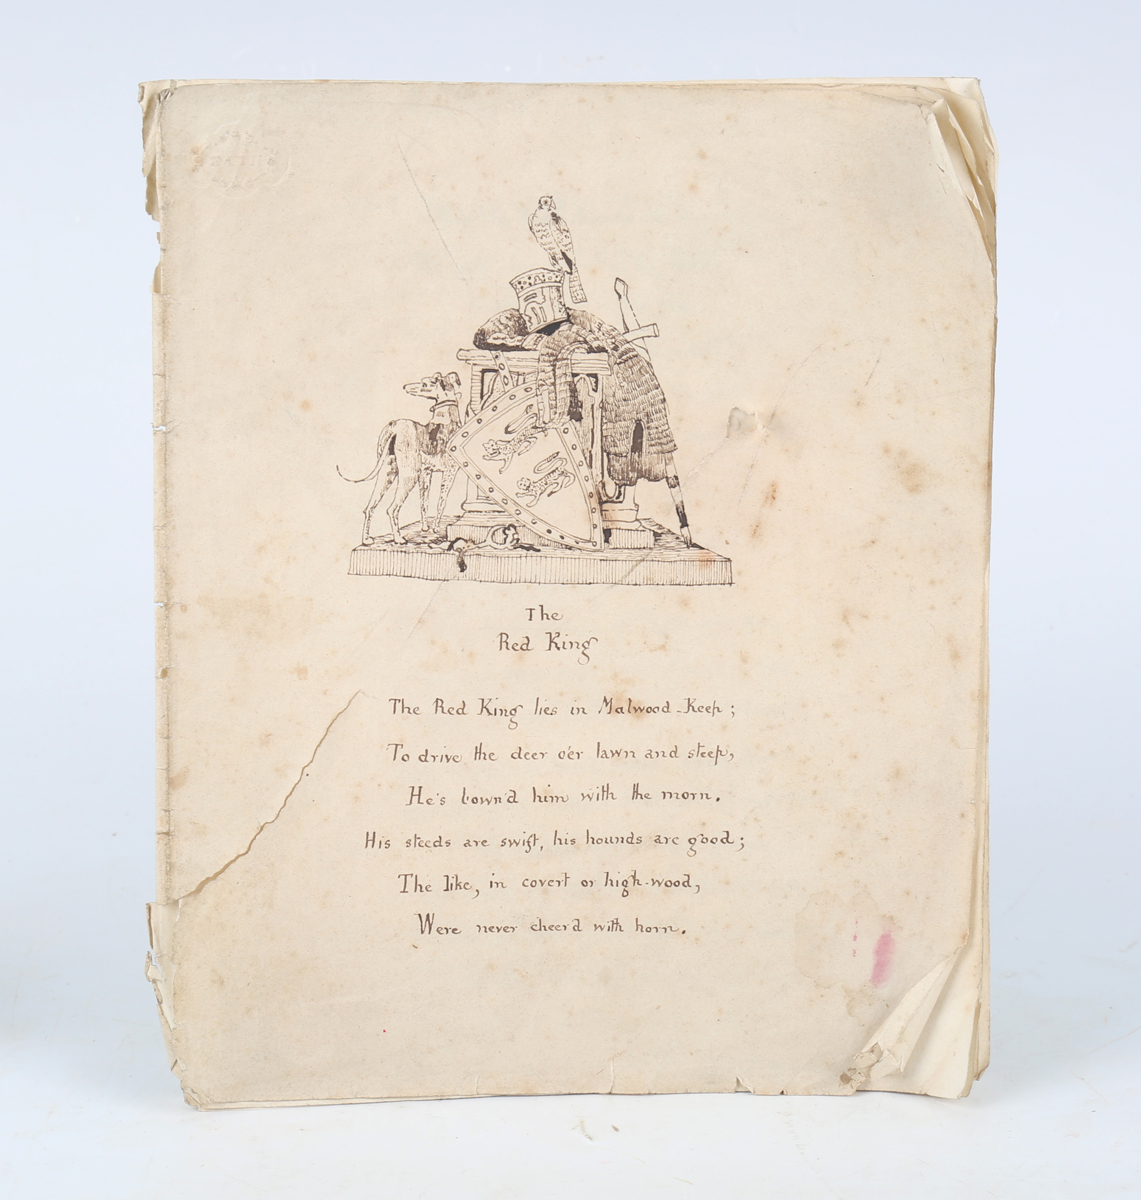 The
Red King
The Red King lies in Malwood-Keep;
To drive the deer o'er lawn and steep,
He's bown'd him with the morn.
His steeds are swift, his hounds are good;
The like, in covert or high-wood,
Were never cheer'd with horn.